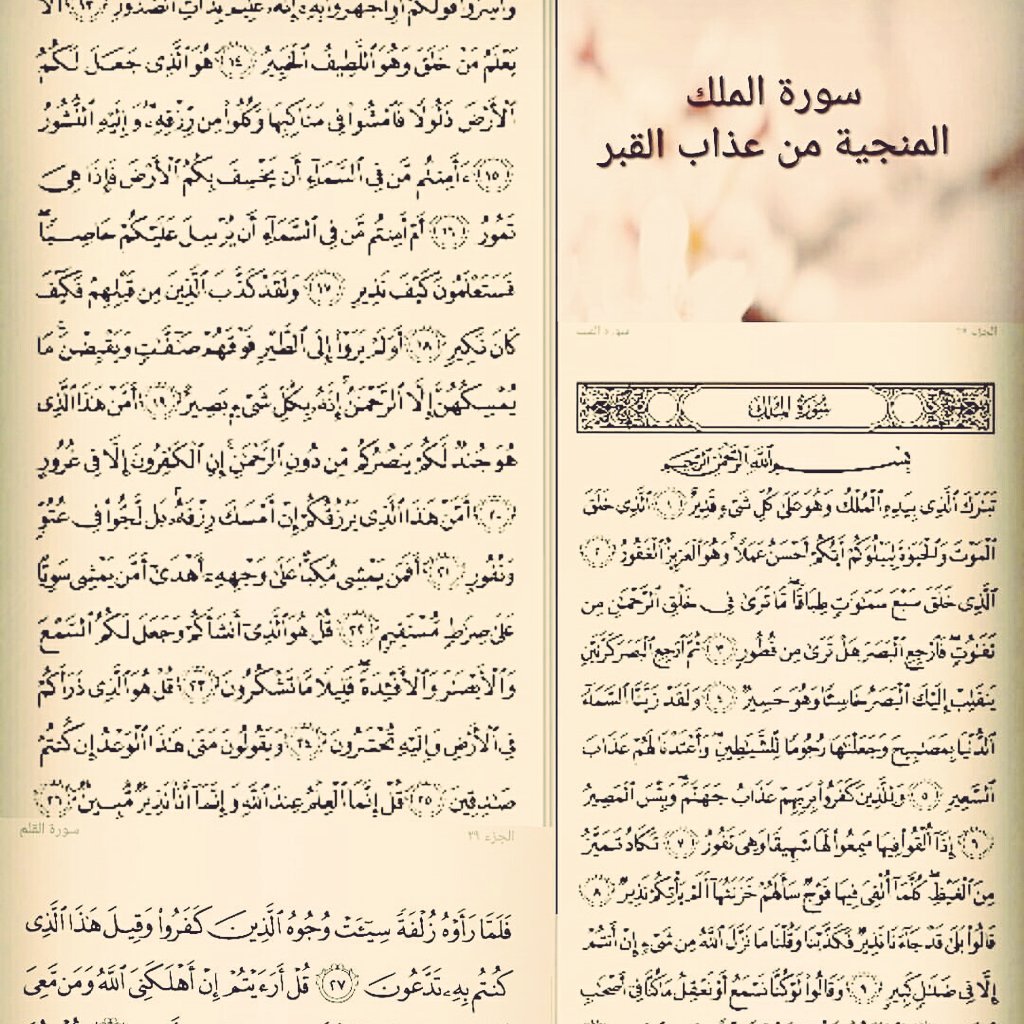 سورة الملك
المنجية من عذاب القبر
سورة القلم
الجزء ٢٩
سُورَةُ المُلْكِ
بِسْمِ ٱللَّهِ ٱلرَّحْمَٰنِ ٱلرَّحِيمِ
تَبَٰرَكَ ٱلَّذِى بِيَدِهِ ٱلْمُلْكُ وَهُوَ عَلَىٰ كُلِّ شَىْءٍ قَدِيرٌ ﴿١﴾ ٱلَّذِى خَلَقَ
ٱلْمَوْتَ وَٱلْحَيَوٰةَ لِيَبْلُوَكُمْ أَيُّكُمْ أَحْسَنُ عَمَلًا ۚ وَهُوَ ٱلْعَزِيزُ ٱلْغَفُورُ ﴿٢﴾
ٱلَّذِى خَلَقَ سَبْعَ سَمَٰوَٰتٍ طِبَاقًا ۖ مَّا تَرَىٰ فِى خَلْقِ ٱلرَّحْمَٰنِ مِن
تَفَٰوُتٍ ۖ فَٱرْجِعِ ٱلْبَصَرَ هَلْ تَرَىٰ مِن فُطُورٍ ﴿٣﴾ ثُمَّ ٱرْجِعِ ٱلْبَصَرَ كَرَّتَيْنِ
يَنقَلِبْ إِلَيْكَ ٱلْبَصَرُ خَاسِئًا وَهُوَ حَسِيرٌ ﴿٤﴾ وَلَقَدْ زَيَّنَّا ٱلسَّمَآءَ
ٱلدُّنْيَا بِمَصَٰبِيحَ وَجَعَلْنَٰهَا رُجُومًا لِّلشَّيَٰطِينِ ۖ وَأَعْتَدْنَا لَهُمْ عَذَابَ
ٱلسَّعِيرِ ﴿٥﴾ وَلِلَّذِينَ كَفَرُوا۟ بِرَبِّهِمْ عَذَابُ جَهَنَّمَ ۖ وَبِئْسَ ٱلْمَصِيرُ
﴿٦﴾ إِذَآ أُلْقُوا۟ فِيهَا سَمِعُوا۟ لَهَا شَهِيقًا وَهِىَ تَفُورُ ﴿٧﴾ تَكَادُ تَمَيَّزُ
مِنَ ٱلْغَيْظِ ۖ كُلَّمَآ أُلْقِىَ فِيهَا فَوْجٌ سَأَلَهُمْ خَزَنَتُهَآ أَلَمْ يَأْتِكُمْ نَذِيرٌ ﴿٨﴾
قَالُوا۟ بَلَىٰ قَدْ جَآءَنَا نَذِيرٌ فَكَذَّبْنَا وَقُلْنَا مَا نَزَّلَ ٱللَّهُ مِن شَىْءٍ إِنْ أَنتُمْ
إِلَّا فِى ضَلَٰلٍ كَبِيرٍ ﴿٩﴾ وَقَالُوا۟ لَوْ كُنَّا نَسْمَعُ أَوْ نَعْقِلُ مَا كُنَّا فِىٓ أَصْحَٰبِ
وَأَسِرُّوا۟ قَوْلَكُمْ أَوِ ٱجْهَرُوا۟ بِهِۦٓ ۖ إِنَّهُۥ عَلِيمٌۢ بِذَاتِ ٱلصُّدُورِ ﴿١٣﴾ أَلَا
يَعْلَمُ مَنْ خَلَقَ وَهُوَ ٱللَّطِيفُ ٱلْخَبِيرُ ﴿١٤﴾ هُوَ ٱلَّذِى جَعَلَ لَكُمُ
ٱلْأَرْضَ ذَلُولًا فَٱمْشُوا۟ فِى مَنَاكِبِهَا وَكُلُوا۟ مِن رِّزْقِهِۦ ۖ وَإِلَيْهِ ٱلنُّشُورُ
﴿١٥﴾ ءَأَمِنتُم مَّن فِى ٱلسَّمَآءِ أَن يَخْسِفَ بِكُمُ ٱلْأَرْضَ فَإِذَا هِىَ
تَمُورُ ﴿١٦﴾ أَمْ أَمِنتُم مَّن فِى ٱلسَّمَآءِ أَن يُرْسِلَ عَلَيْكُمْ حَاصِبًا ۖ
فَسَتَعْلَمُونَ كَيْفَ نَذِيرِ ﴿١٧﴾ وَلَقَدْ كَذَّبَ ٱلَّذِينَ مِن قَبْلِهِمْ فَكَيْفَ
كَانَ نَكِيرِ ﴿١٨﴾ أَوَلَمْ يَرَوْا۟ إِلَى ٱلطَّيْرِ فَوْقَهُمْ صَٰٓفَّٰتٍ وَيَقْبِضْنَ ۚ مَا
يُمْسِكُهُنَّ إِلَّا ٱلرَّحْمَٰنُ ۚ إِنَّهُۥ بِكُلِّ شَىْءٍۭ بَصِيرٌ ﴿١٩﴾ أَمَّنْ هَٰذَا ٱلَّذِى
هُوَ جُندٌ لَّكُمْ يَنصُرُكُم مِّن دُونِ ٱلرَّحْمَٰنِ ۚ إِنِ ٱلْكَٰفِرُونَ إِلَّا فِى غُرُورٍ
﴿٢٠﴾ أَمَّنْ هَٰذَا ٱلَّذِى يَرْزُقُكُمْ إِنْ أَمْسَكَ رِزْقَهُۥ ۚ بَل لَّجُّوا۟ فِى عُتُوٍّ
وَنُفُورٍ ﴿٢١﴾ أَفَمَن يَمْشِى مُكِبًّا عَلَىٰ وَجْهِهِۦٓ أَهْدَىٰٓ أَمَّن يَمْشِى سَوِيًّا
عَلَىٰ صِرَٰطٍ مُّسْتَقِيمٍ ﴿٢٢﴾ قُلْ هُوَ ٱلَّذِىٓ أَنشَأَكُمْ وَجَعَلَ لَكُمُ ٱلسَّمْعَ
وَٱلْأَبْصَٰرَ وَٱلْأَفْـِٔدَةَ ۖ قَلِيلًا مَّا تَشْكُرُونَ ﴿٢٣﴾ قُلْ هُوَ ٱلَّذِى ذَرَأَكُمْ
فِى ٱلْأَرْضِ وَإِلَيْهِ تُحْشَرُونَ ﴿٢٤﴾ وَيَقُولُونَ مَتَىٰ هَٰذَا ٱلْوَعْدُ إِن كُنتُمْ
صَٰدِقِينَ ﴿٢٥﴾ قُلْ إِنَّمَا ٱلْعِلْمُ عِندَ ٱللَّهِ وَإِنَّمَآ أَنَا۠ نَذِيرٌ مُّبِينٌ ﴿٢٦﴾
فَلَمَّا رَأَوْهُ زُلْفَةً سِيٓـَٔتْ وُجُوهُ ٱلَّذِينَ كَفَرُوا۟ وَقِيلَ هَٰذَا ٱلَّذِى
كُنتُم بِهِۦ تَدَّعُونَ ﴿٢٧﴾ قُلْ أَرَءَيْتُمْ إِنْ أَهْلَكَنِىَ ٱللَّهُ وَمَن مَّعِىَ